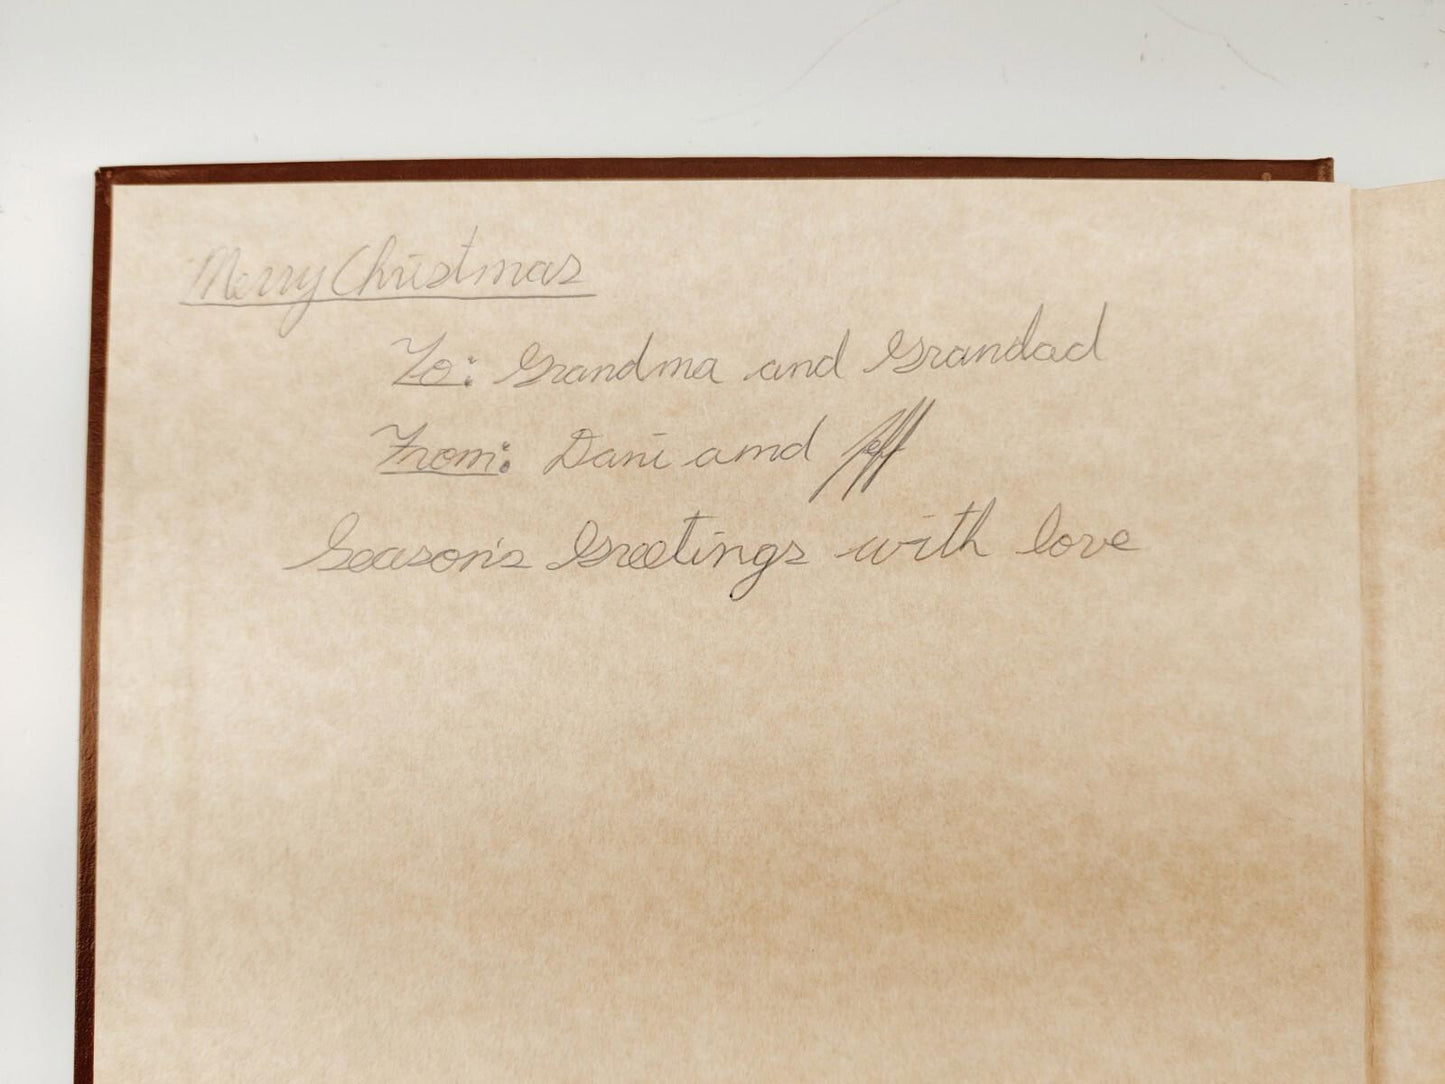 Merry Christmas
To: Grandma and Grandad
From: Dani amd Jeff
Season's Greetings with love